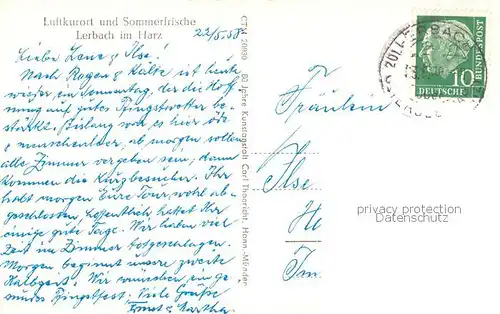 Luftkurort und Sommerfrische
Lerbach im Harz
22/5.58
Liebe Lene & Ilse!
Nach Regen & Kälte ist heute
wieder ein Sonnentag, der die Hoff
nung auf gutes Pfingstwetter be-
stärkt. Bislang war es hier öde
& menschenleer, ab morgen sollen
alle Zimmer vergeben sein, dann
kommen die Kurzbesucher. Ihr
habt morgen Eure Tour wohl ab-
geschlossen, hoffentlich hattet Ihr
einige gute Tage. Wir haben viel
Zeit im Zimmer totgeschlagen.
Morgen beginnt unsere zweite
Halbzeit! Wir wünschen ein ge-
sundes Pfingstfest! Viele Grüße
Ernst & Martha
CTM 20930 80 Jahre Kunstanstalt Carl Thoericht, Hann.-Münden
Fräulein
Ilse
Im
DEUTSCHE BUNDESPOST
10
privacy protection